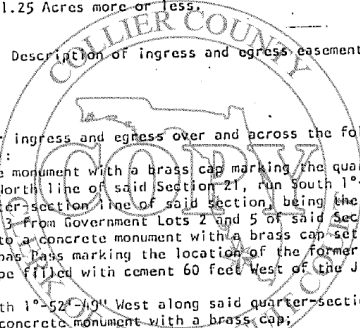 1.25 Acres more or less.
Description of ingress and egress easement
COLLIER COUNTY
COPY
ingress and egress over and across the fol
:
e monument with a brass cap marking the qua
North line of said Section 21, run South 1°
ter-section line of said section, being the
3 from Government Lots 2 and 5 of said Sec
to a concrete monument with a brass cap set
ons Pass marking the location of the former
pe filled with cement 60 feet West of the J
th 1°-52'-49" West along said quarter-sectio
concrete monument with a brass cap;